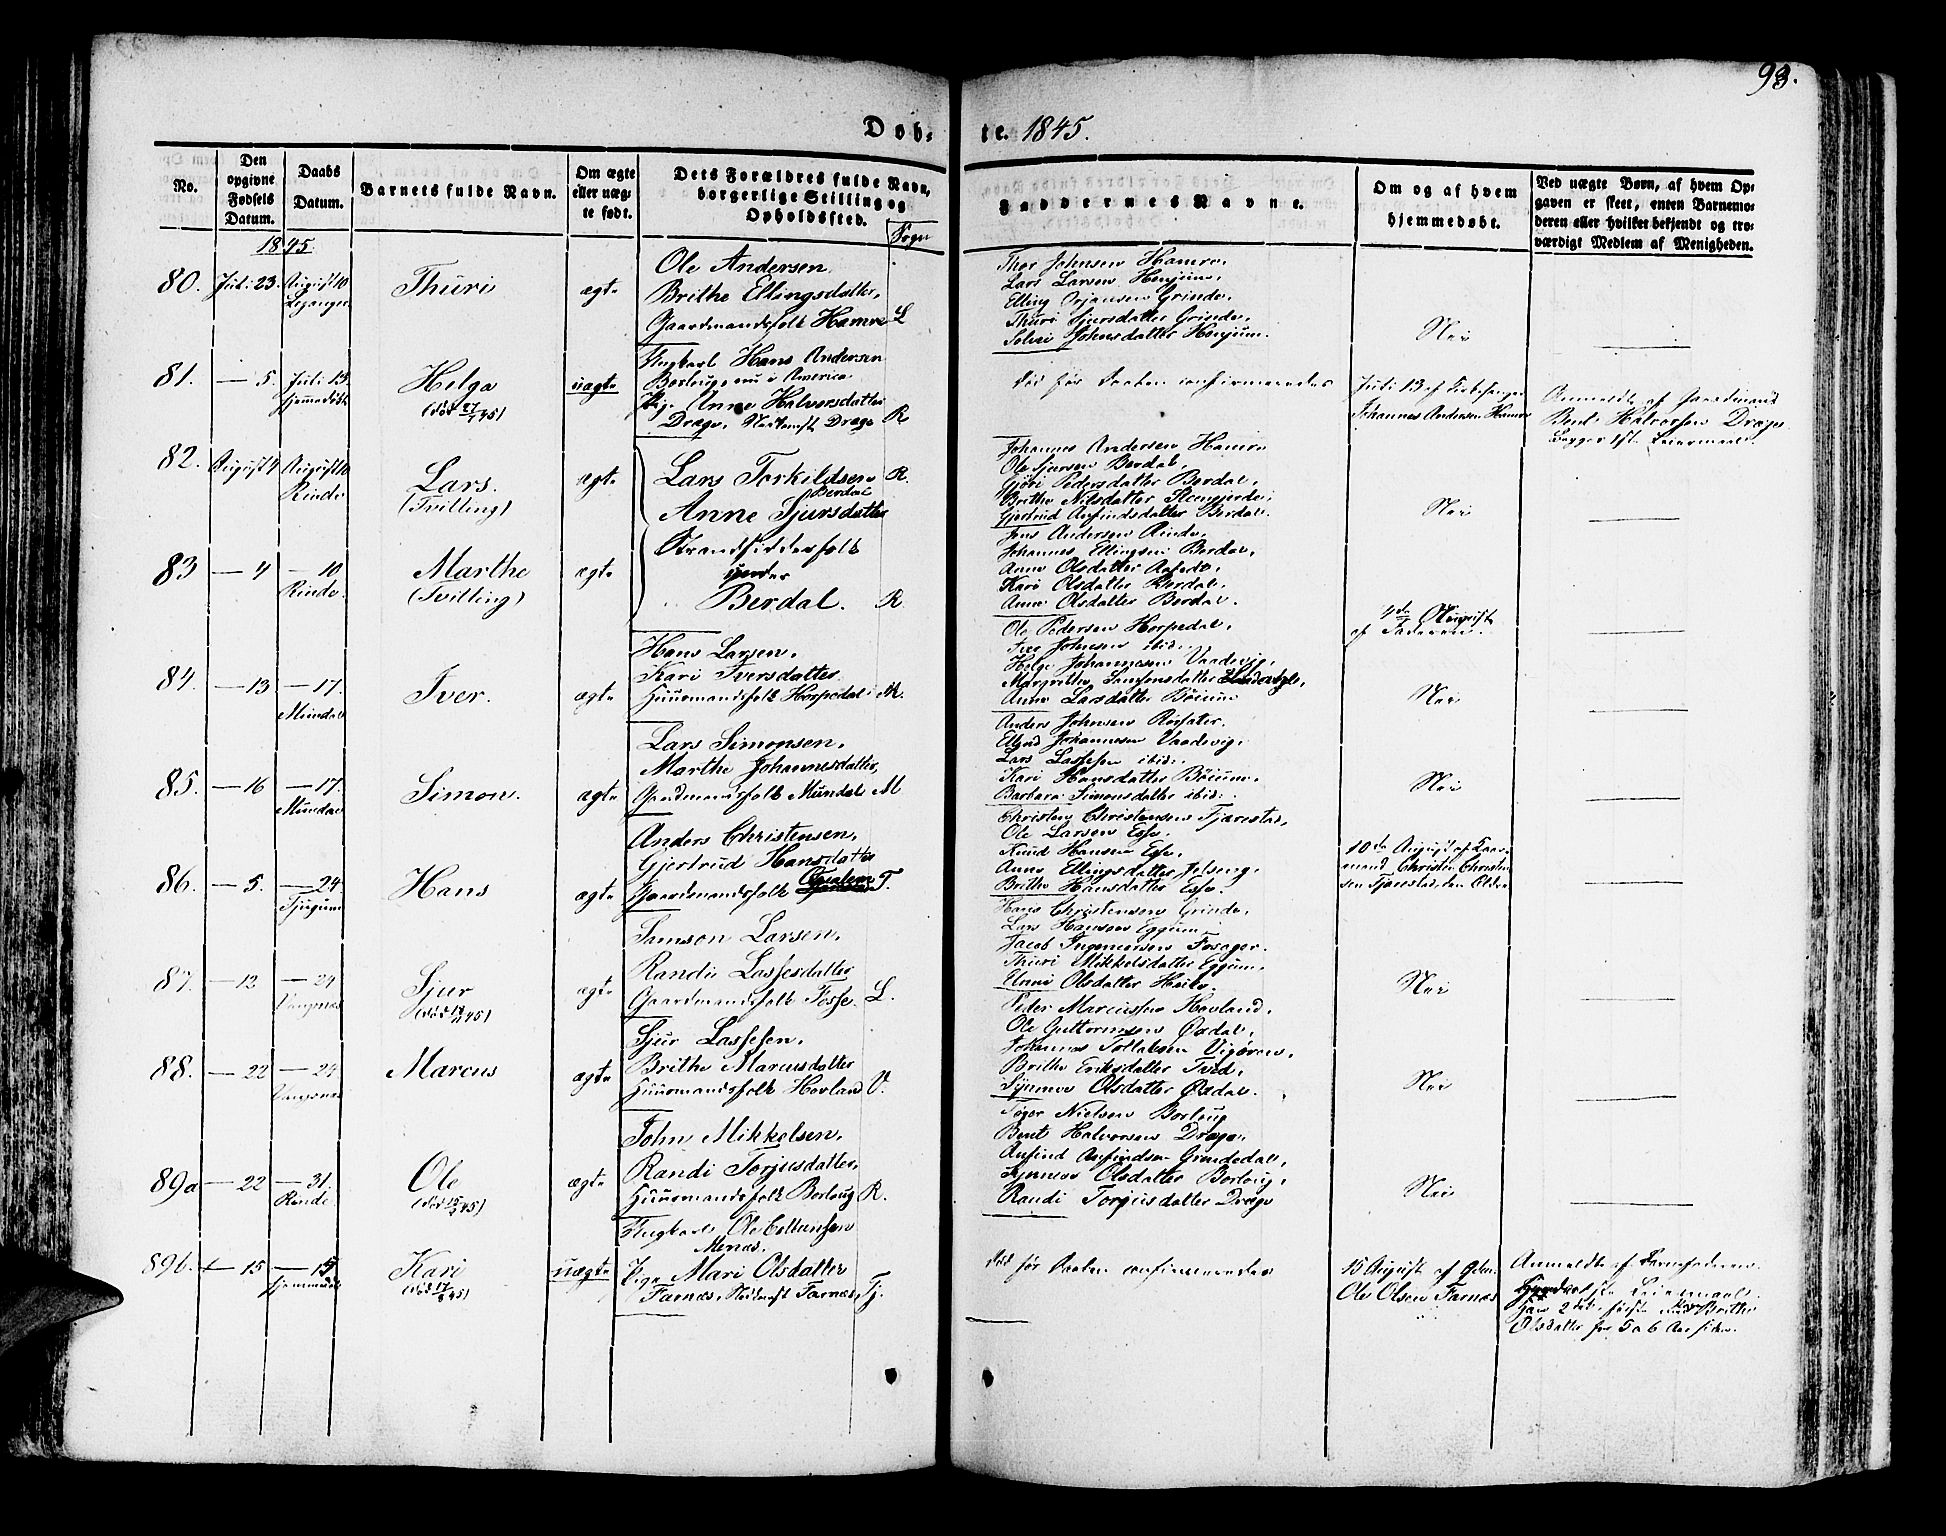 93.
Døb-
te. 1845.
No.
Den opgivne Fødsels Datum.
Daabs Datum.
Barnets fulde Navn.
Om ægte eller uægte født.
Dets Forældres fulde Navn, borgerlige Stilling og Opholdssted.
Sogn
Faddernes Navne.
Om og af hvem hjemmedøbt.
Ved uægte Børn, af hvem Opgaven er skeet, enten Barnemoderen eller hvilket bekjendt og troværdigt Medlem af Menigheden.
1845.
80. Juli 23. August 10 Thuri ægte
Ole Andersen
Brithe Ellingsdatter,
Gaardmandsfolk Hamre L
Thor Johnsen Hamre,
Lars Larsen Henjum,
Elling Grinde,
Thuri Sjursdatter Grinde,
Johnsdatter Henjum.
Nei
81. — 5. Juli 13. Hjemmedøbt Helga uægte
(død 27/7 45)
Ungkarl Hans Andersen
Borlaug, nu i America
Pige Anne Halvorsdatter
Dræge, Dræge R
død før Daaben confirmeredes
Juli 13 af
Johannes Andersen Hamre
Anmeldt af Gaardmand
Bent Halvorsen Dræge.
Begges 1ste Leiermaal.
82. August 4 August 10 Rinde Lars. ægte
(Tvilling)
Lars Torkildsen R.
Berdal
Anne Sjursdatter
Johannes Andersen Hamre
Ole Sjursen Berdal,
Gjøri Pedersdatter Berdal,
Brithe Nilsdatter
Gjertrud Anfindsdatter Berdal.
Nei
83 — 4 — 10 Rinde. Marthe ægte
(Tvilling)
Strandsidderfolk
under
Berdal. R
Jens Andersen Rinde,
Johannes Ellingsen Berdal,
Anne Olsdatter
Kari Olsdatter Berdal,
Anne Olsdatter Berdal.
4de August
af Faderen.
84. — 13 — 17. Mundal Iver. ægte
Hans Larsen,
Kari Iversdatter
Huusmandsfolk Horpedal M.
Ole Pedersen Horpedal,
Iver Johnsen ibid:
Helge Johannesen Vaadevig,
Margrethe Samsonsdatter
Anne Larsdatter Bøium
Nei
85. — 16 — 17. Mundal Simon. ægte
Lars Simonsen,
Marthe Johannesdatter,
Gaardmandsfolk Mundal M
Anders Johnsen
Johannesen Vaadevig,
Lars Lassesen ibid:
Kari Hansdatter Bøium,
Barbara Simonsdatter ibid:
Nei
86. — 5. — 24 Tjugum Hans ægte
Anders Christensen,
Gjertrud Hansdatter
Gaardmandsfolk T.
Christen Christensen Tjærestad,
Ole Larsen Esse,
Knud Hansen Esse,
Anne Ellingsdatter
Brithe Hansdatter Esse.
10de August af Gaardmand
Christen Christensen
Tjærestad, den Ældre
87. — 12 — 24 Vangsnæs Sjur ægte
Samson Larsen,
Randi Lassesdatter
Gaardmandsfolk Fosse. L.
Hans Christensen Grinde,
Lars Hansen Eggum
Jacob Ingemorsen Fosager.
Thuri Mikkelsdatter Eggum,
Olsdatter
Nei
88. — 22 — 24 Vangsnæs Marcus ægte
Sjur Lassesen,
Brithe Marcusdatter
Huusmandsfolk Hovland V.
Peder Marcussen Hovland,
Ole Guttormsen Oxdal,
Johannes
Brithe Eriksdatter Tved,
Synneve Olsdatter Oxdal.
Nei
89a — 22 — 31. Rinde Ole ægte
John Mikkelsen,
Randi Torjusdatter,
Huusmandsfolk Borlaug R.
Nielsen Borlaug
Bent Halvorsen Dræge,
Anfind Anfindsen Grindedal,
Synneve Olsdatter Borlaug,
Randi Torjusdatter Dræge
Nei
89b. — 15 — 15 Hjemmedøbt Kari uægte
Ungkarl Ole
Menæs.
Pige Mari Olsdatter
Farnæs, Farnæs, Tj.
død før Daaben confirmeredes
15 August af
Ole Olsen Farnæs
Anmeldt af Barnefaderen.
Leiermaal.
2det, første med Brithe
Olsdatter for 5 a 6 Aar siden.